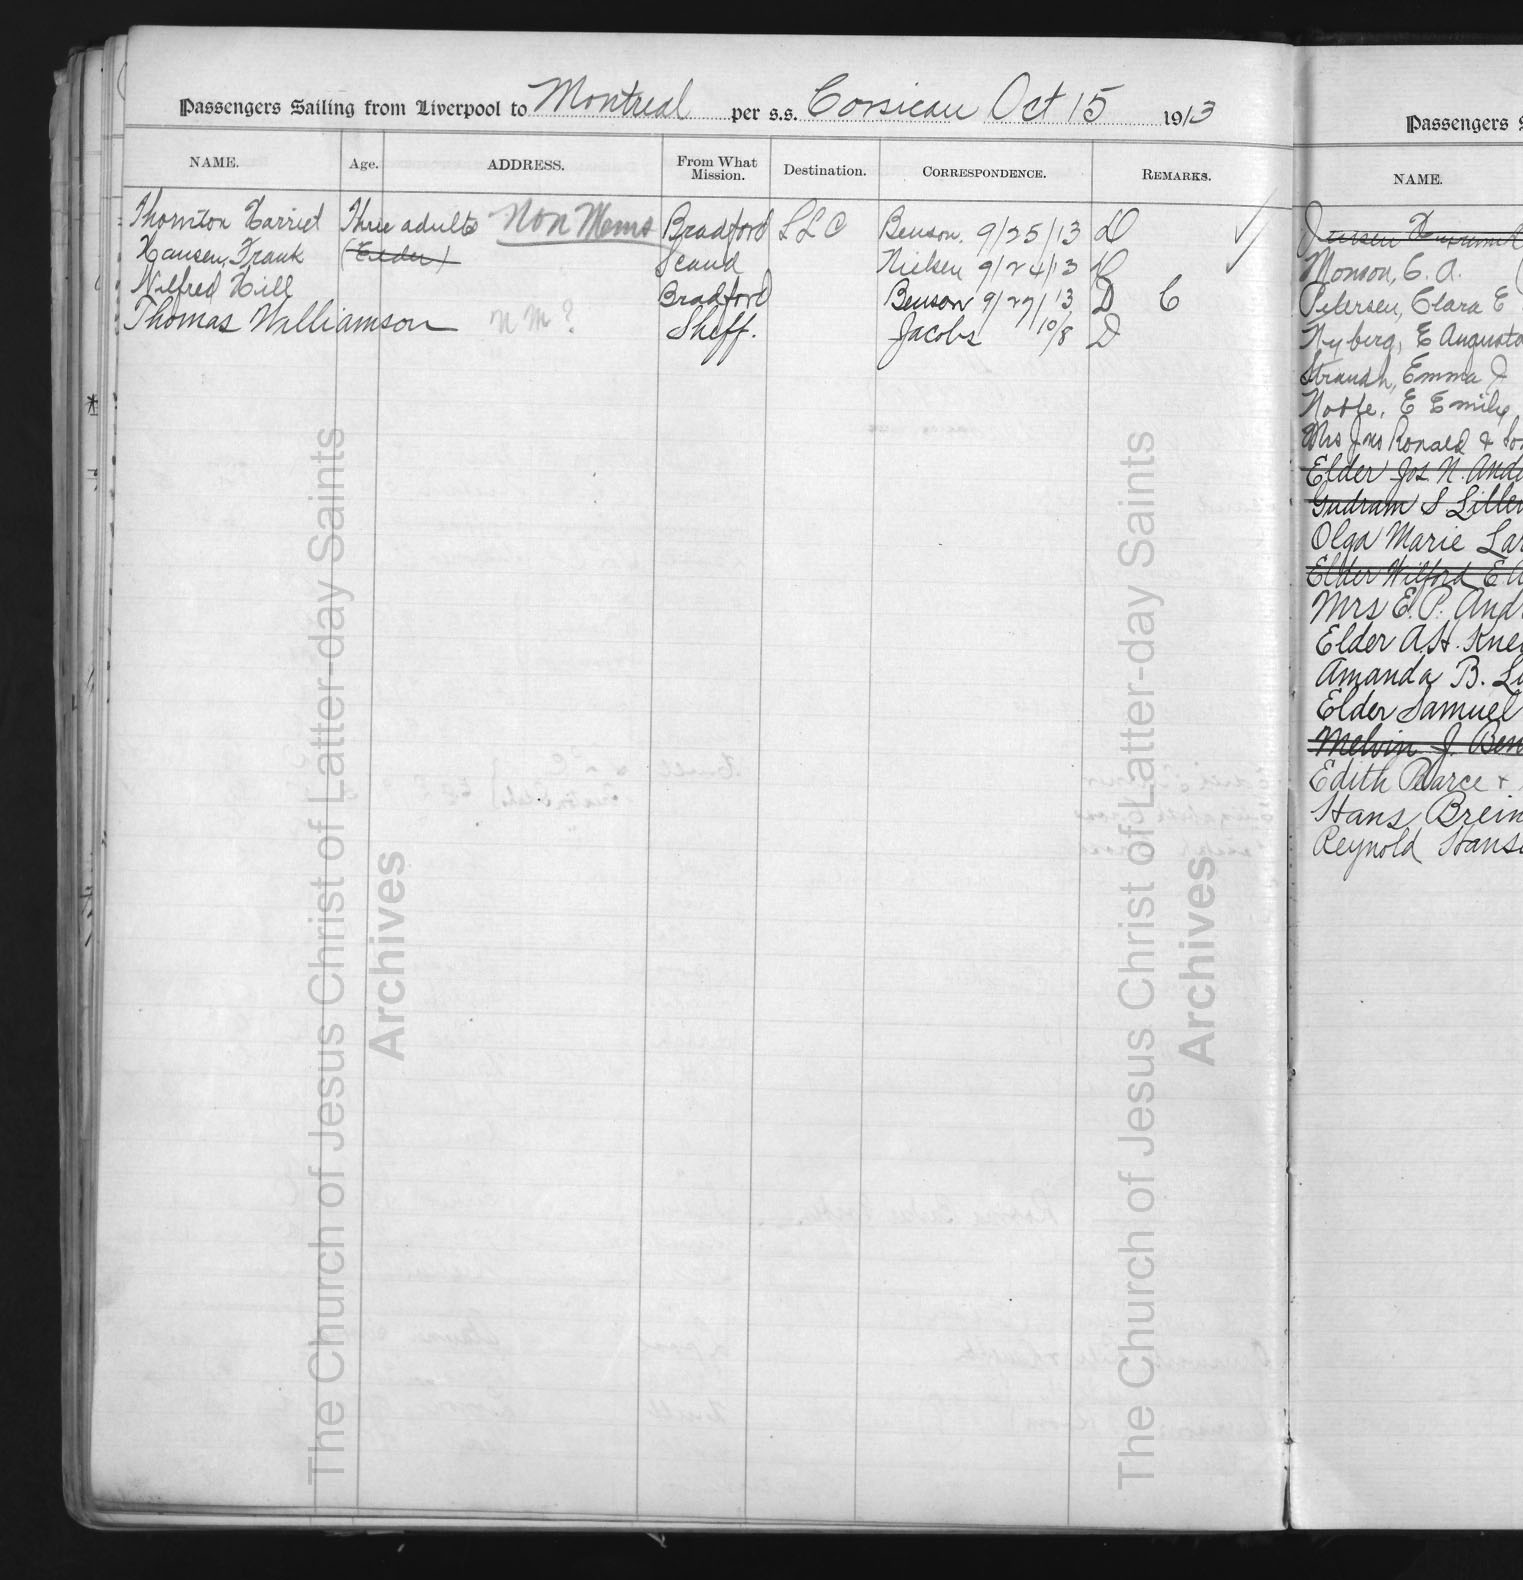 Passengers Sailing from Liverpool to Montreal per s.s. Corsican Oct 15 1913
NAME. Age. ADDRESS. From What Mission. Destination. CORRESPONDENCE. REMARKS.
Thornton Harriet Three adults Non Mems Bradford SLC Benson. 9/25/13 D
Hansen, Frank (Elder) Scand Nielsen 9/24/13 D
Wilfred Hill Bradford Benson 9/27/13 D C
Thomas Williamson NM? Sheff. Jacobs 10/8 D
Passengers S
NAME.
Jensen
Monson, C. A.
Petersen, Clara E
Nyberg, E Augusta
Strandh, Emma J
E Emily
Mrs Jno Ronald &
Elder Jos. N. Ande
S Lillen
Olga Marie Lar
Elder Wilford E
Mrs E. P. Andr
Elder A.H.
Amanda B. Lu
Elder Samuel
Melvin J. Ben
Edith Pearce +
Hans Brein
Reynold Hans
The Church of Jesus Christ of Latter-day Saints
Archives
The Church of Jesus Christ of Latter-day Saints
Archives